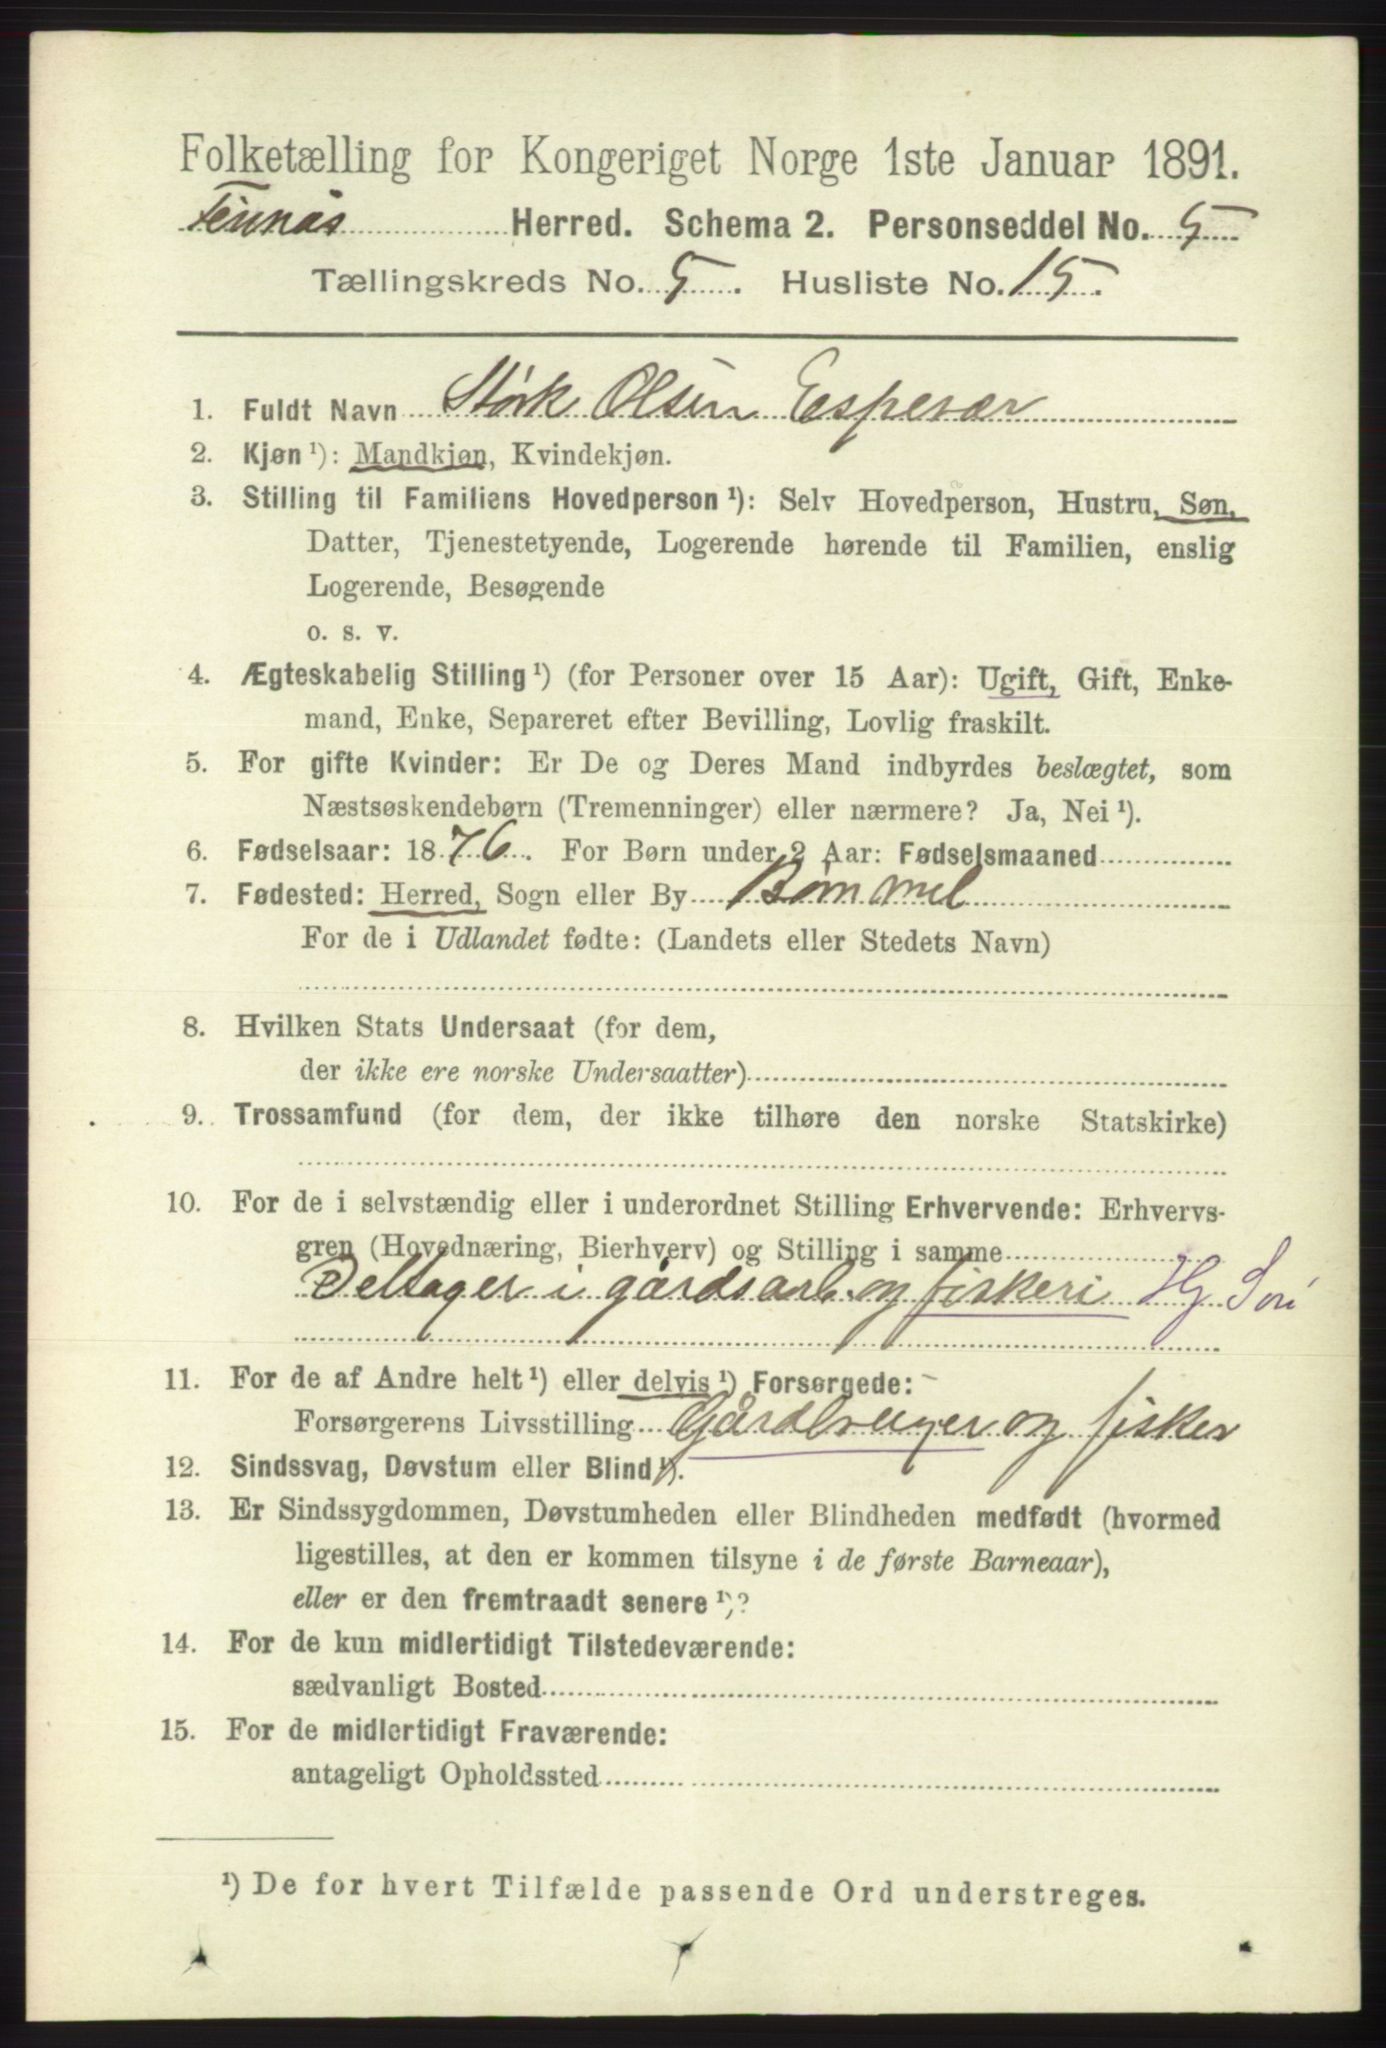 Folketælling for Kongeriget Norge 1ste Januar 1891.
Finnås Herred. Schema 2. Personseddel No. 5
Tællingskreds No. 5. Husliste No. 15.
1. Fuldt Navn Størk Olsen Espevær
2. Kjøn ¹): Mandkjøn, Kvindekjøn.
3. Stilling til Familiens Hovedperson ¹): Selv Hovedperson, Hustru, Søn,
Datter, Tjenestetyende, Logerende hørende til Familien, enslig
Logerende, Besøgende
o. s. v.
4. Ægteskabelig Stilling ¹) (for Personer over 15 Aar): Ugift, Gift, Enke-
mand, Enke, Separeret efter Bevilling, Lovlig fraskilt.
5. For gifte Kvinder: Er De og Deres Mand indbyrdes beslægtet, som
Næstsøskendebørn (Tremenninger) eller nærmere? Ja, Nei ¹).
6. Fødselsaar: 1876. For Børn under 2 Aar: Fødselsmaaned
7. Fødested: Herred, Sogn eller By Bømmel
For de i Udlandet fødte: (Landets eller Stedets Navn)
8. Hvilken Stats Undersaat (for dem,
der ikke ere norske Undersaatter)
9. Trossamfund (for dem, der ikke tilhøre den norske Statskirke)
10. For de i selvstændig eller i underordnet Stilling Erhvervende: Erhvervs-
gren (Hovednæring, Bierhverv) og Stilling i samme
Deltager i gårdsarb. og fiskeri
11. For de af Andre helt ¹) eller delvis ¹) Forsørgede:
Forsørgerens Livsstilling Gårdbruger og fisker
12. Sindssvag, Døvstum eller Blind ¹).
13. Er Sindssygdommen, Døvstumheden eller Blindheden medfødt (hvormed
ligestilles, at den er kommen tilsyne i de første Barneaar),
eller er den fremtraadt senere ¹)?
14. For de kun midlertidigt Tilstedeværende:
sædvanligt Bosted
15. For de midlertidigt Fraværende:
antageligt Opholdssted
¹) De for hvert Tilfælde passende Ord understreges.